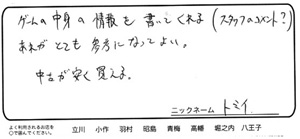 ゲームの中身の情報を書いてくれる(スタッフのコメント?)
あれがとても参考になってよい。
中古が安く買える。
ニックネーム トミイ
よく利用されるお店を
○で選んでください。
立川 小作 羽村 昭島 青梅 高幡 堀之内 八王子